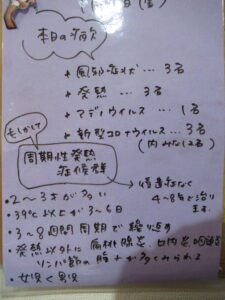 本日の病欠
＊風邪症状… 3名
＊発熱 … 3名
＊アデノウイルス… 1名
＊新型コロナウイルス…3名
(内 みなし2名)
もしかして
周期性発熱
症候群
→ 後遺症なく
4〜8年で治り
ます。
・2〜3才が多い
・39℃以上が3〜6日
・3〜8週間周期で繰り返す
・発熱以外に扁桃腺炎、口内炎、咽頭炎
リンパ節の腫れが多くみられる
・女児く男児